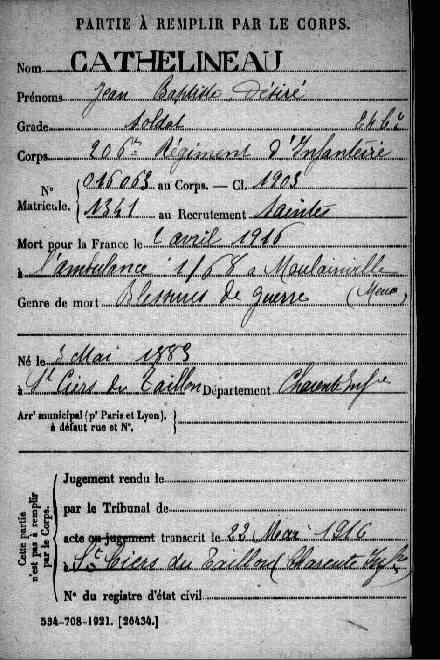 PARTIE À REMPLIR PAR LE CORPS.
Nom CATHELINEAU
Prénoms Jean Baptiste Désiré
Grade soldat 24e Cie
Corps 206e Régiment d'Infanterie
N° Matricule. { 016063 au Corps. — Cl. 1903
1341 au Recrutement Saintes
Mort pour la France le 2 avril 1916
à l'ambulance 1/68 à Moulainville
Genre de mort Blessures de guerre (Meuse)
Né le 3 Mai 1883
à St Ciers du Taillon Département Charente Infre
Arrt municipal (pr Paris et Lyon), à défaut rue et N°. }
Cette partie n'est pas à remplir par le Corps.
Jugement rendu le
par le Tribunal de
acte ou jugement transcrit le 22 Mai 1916
à St Ciers du Taillon (Charente Infre)
N° du registre d'état civil
534-708-1921. [26434.]